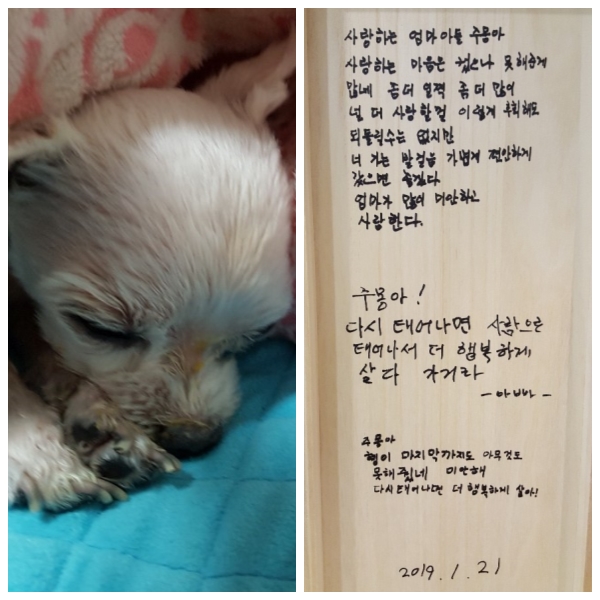 사랑하는 엄마아들 주몽아
사랑하는 마음은 컸으나 못해준게
많네 좀더 일찍 좀 더 많이
널 더 사랑할걸 이렇게 후회해도
되돌릴수는 없지만
너 가는 발걸음 가볍게 편안하게
갔으면 좋겠다
엄마가 많이 미안하고
사랑한다.
주몽아!
다시 태어나면 사람으로
태어나서 더 행복하게
살다 가거라
- 아빠 -
주몽아
형이 마지막까지도 아무것도
못해줬네 미안해
다시태어나면 더 행복하게 살아!
2019. 1. 21